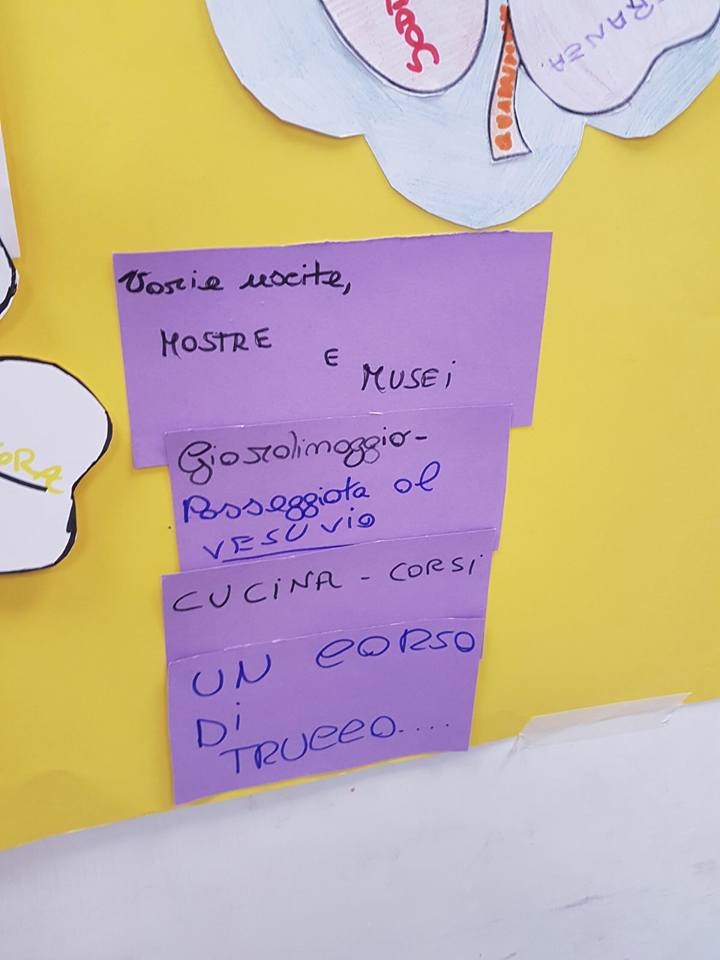 RANEA
Varie uscite,
MOSTRE
E
MUSEi
ORA
Giardinaggio-
Passeggiata al
VESUVIO
CUCiNA - CORSi
UN CORSO
Di
TRUCCO....